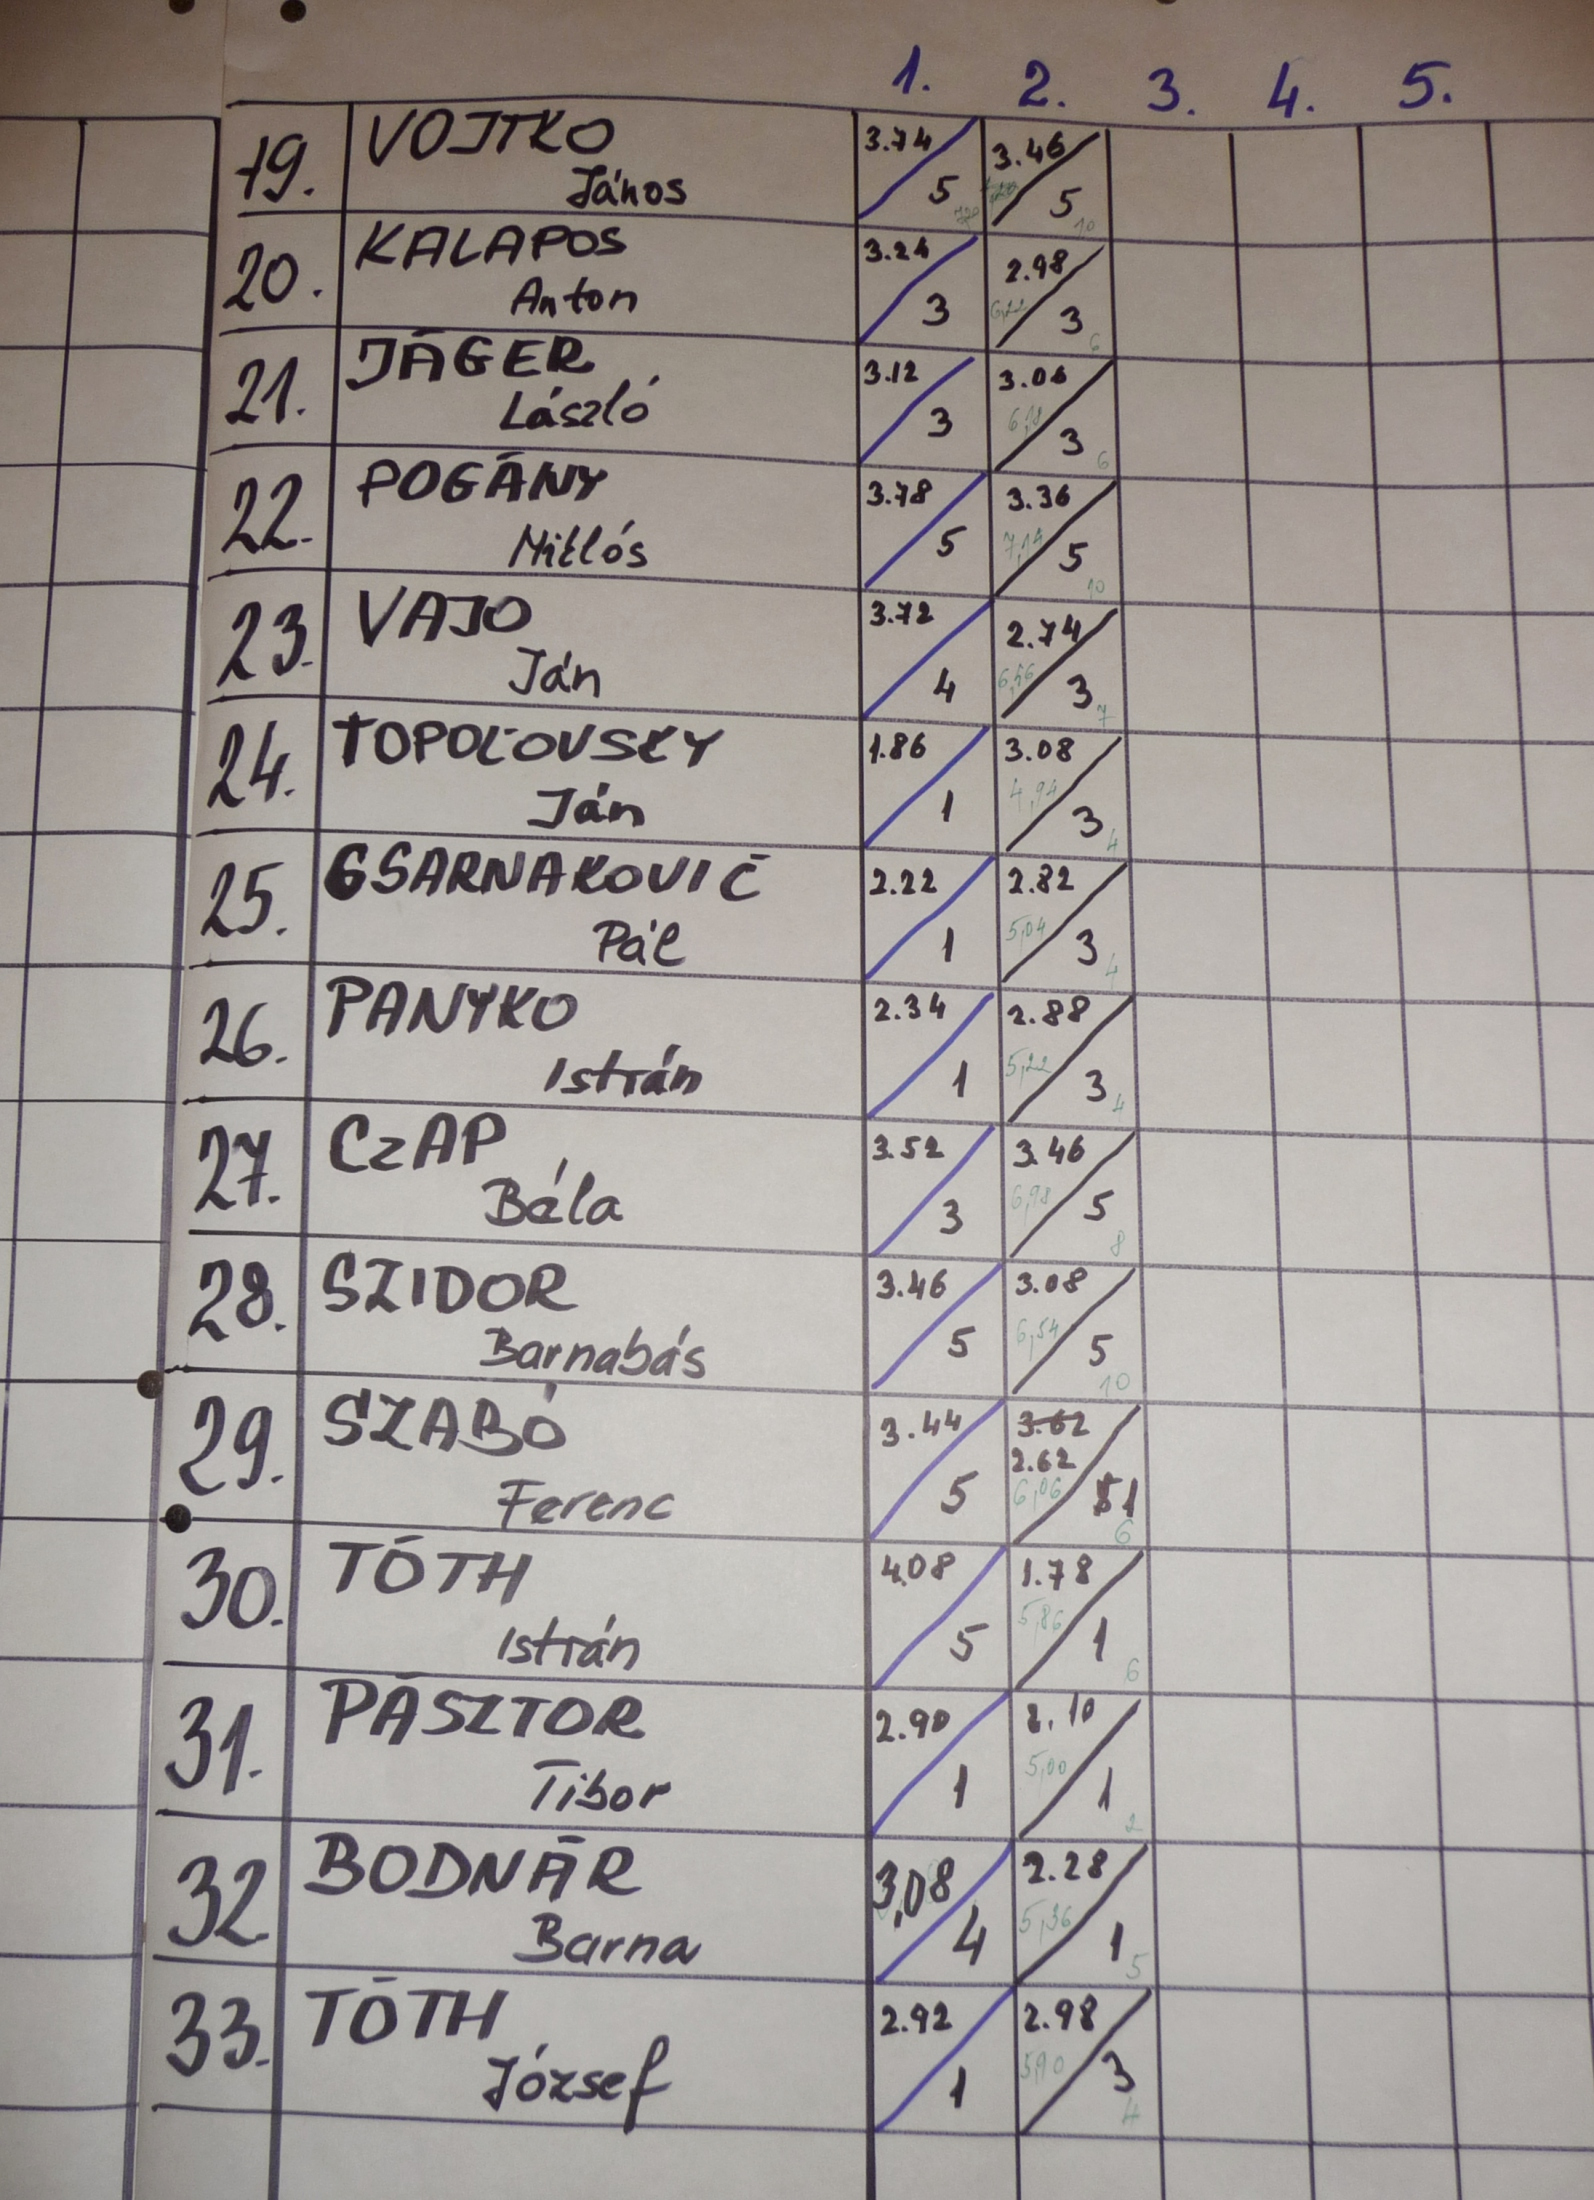 1. 2. 3. 4. 5.
19. VOJTKO 3.74 3.46
János 5 7,20 5 10
20. KALAPOS 3.24 2.98
Anton 3 6,22 3 6
21. JÁGER 3.12 3.06
László 3 6,18 3 6
22. POGÁNY 3.78 3.36
Miklós 5 7,14 5 10
23. VAJO 3.72 2.74
Ján 4 6,46 3 7
24. TOPOĽOVSKY 1.86 3.08
Ján 1 4,94 3 4
25. GSARNAKOVIČ 2.22 2.82
Pál 1 5,04 3 4
26. PANYKO 2.34 2.88
István 1 5,22 3 4
27. CzAP 3.52 3.46
Béla 3 6,98 5 8
28. SZIDOR 3.46 3.08
Barnabás 5 6,54 5 10
29. SZABÓ 3.44 3.62
2.62
Ferenc 5 6,06 1 6
30. TÓTH 4.08 1.78
István 5 5,86 1 6
31. PÁSZTOR 2.90 2.10
Tibor 1 5,00 1 2
32. BODNÁR 3,08 2.28
Barna 4 5,36 1 5
33. TÓTH 2.92 2.98
József 1 5,90 3 4